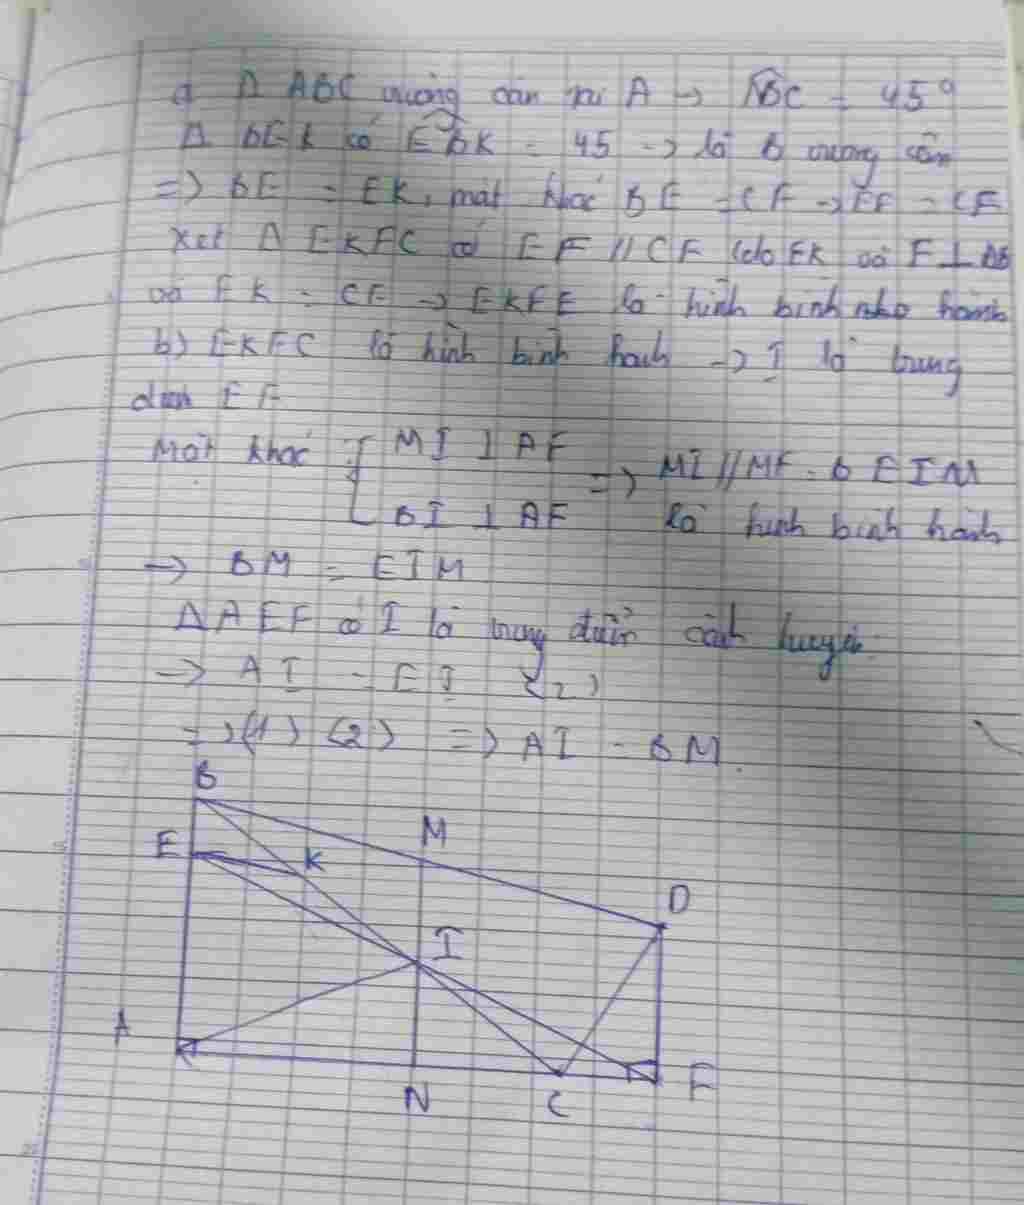 a Δ ABC vuông cân tại A -> ABC = 45°
Δ BEK có EBK = 45 -> là Δ vuông cân
=> BE = EK, mát khác BE = CF -> EF = CF
Xét Δ EKFC có EF // CF (do EK và F ⊥ AB
và EK = CF -> EKFE là hình bình nho hành
b) EKFC là hình bình hành -> I là trung
điểm EF
Mặt khác { MI ⊥ AF => MI // MF. Δ EIM
BI ⊥ AF là hình bình hành
-> BM = EIM
Δ AEF có I là trung điểm cạnh huyền
-> AI = EI (2)
=> (1) (2) => AI = BM.
B
M
E
K
D
I
A
N
C
F